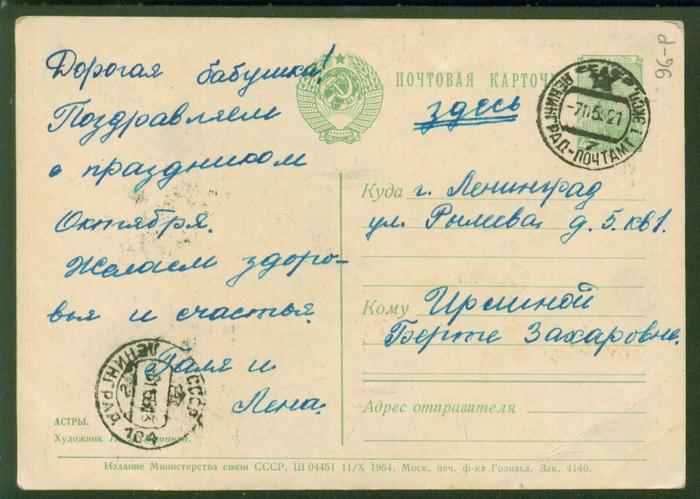 Дорогая бабушка!
Поздравляем
с праздником
Октября.
Желаем здоро-
вья и счастья.
Галя и
Лена.
АСТРЫ.
Художник
ПОЧТОВАЯ КАРТОЧ
здесь
ЛЕНИНГРАД-ПОЧТАМТ
96-Р
Куда г. Ленинград
ул. Рылеева, д. 5. кв 1.
Кому
Берте Захаровне.
Адрес отправителя
СССР
ЛЕНИНГРАД
104
Издание Министерства связи СССР. Ш 04451 11/X 1954. Моск. печ. ф-ка Гознака. Зак. 4140.